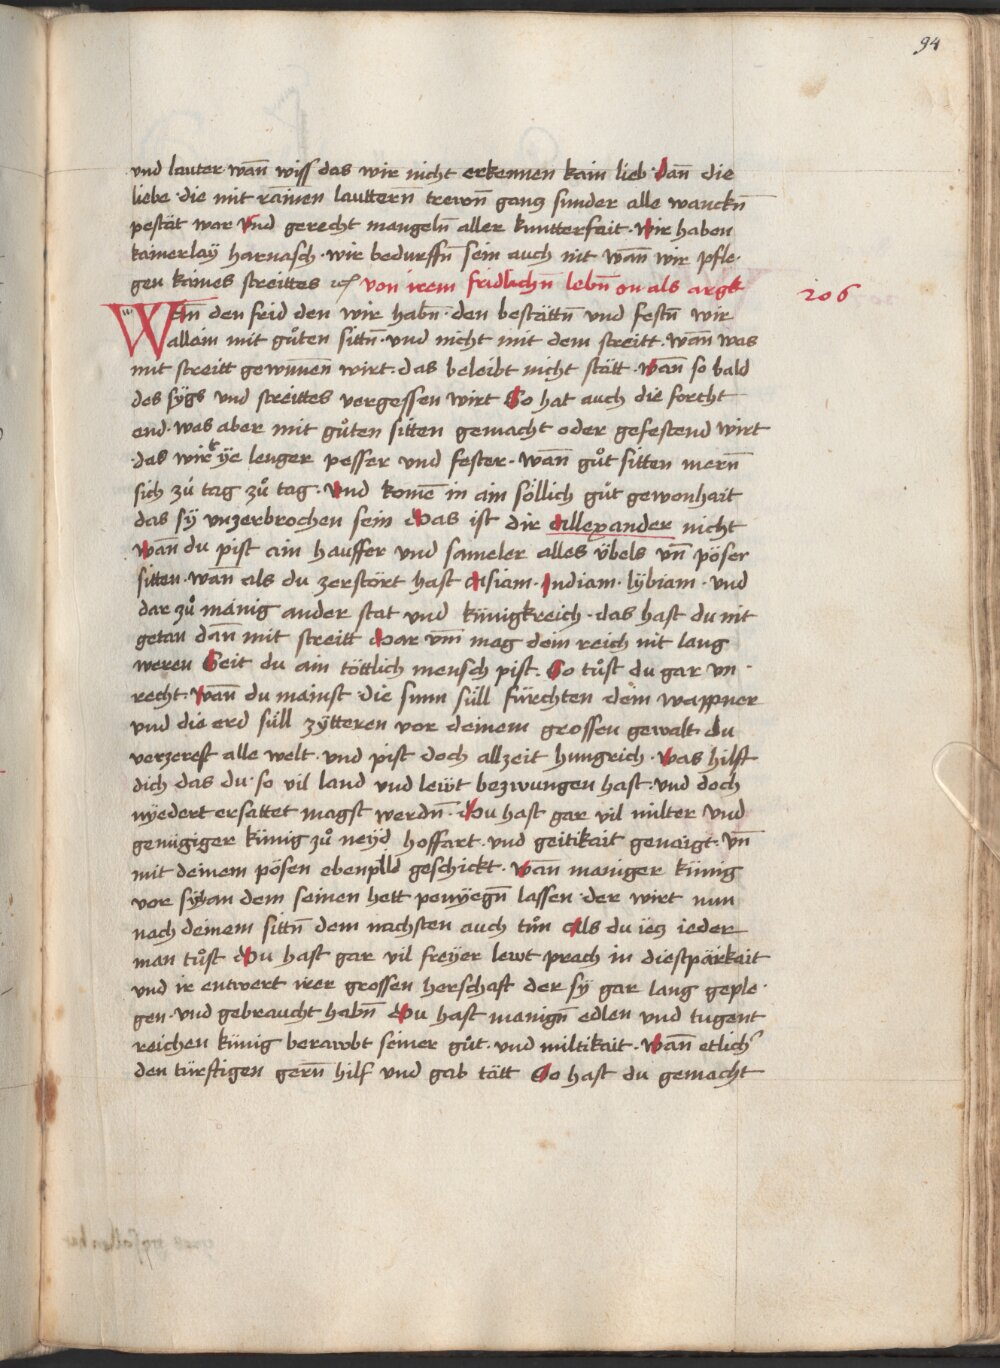 94
und lauter · wan̄ wiss das wir nicht erkennen kain lieb · Dan̄ die
liebe · die mit rainen lautterñ trewñ ganz sunder alle wanckñ
pestät war Vnd gerecht mangelñ aller kuntterfait · Wir haben
kainerlaÿ harnasch · wir bedurffñ sein auch nit wan̄ wir pfle·
gen kaines streittes ꝛc von irem fridlichñ lebñ on als argk
206
WAn den frid den wir habñ · den bestättñ und festñ wir
allain mit gůten sittñ · und nicht mit dem streitt · wan̄ was
mit streitt gewunnen̄ wirt · das beleibt nicht stätt · Wan̄ so bald
des sÿgs und streittes vergessen wirt So hat auch die forcht
end · was aber mit gůten sitten gemacht oder gefestend wirt
· das wirt ÿe lenger pesser und fester · wan̄ gůt sitten merñ
sich zů tag zů tag · Vnd komē in ain söllich gůt gewonhait
das sÿ unzerbrochen sein Das ist dir Allexander nicht
Wan̄ du pist ain hauffer und sameler alles übels vn̄ pöser
sitten · wan als du zerstört hast Asiam · Indiam · lÿbiam · und
dar zů mänig ander stat und künigkreich · das hast du nit
getan dan̄ mit streitt Dar vm̄ mag dein reich nit lang
weren Seit du ain töttlich mensch pist · So tůst du gar vn ·
recht · Wan̄ du mainst die sunn süll fürchten dein wappner
und die erd süll zÿtteren vor deinem grossen gewalt · du
verzerest alle welt · und pist doch allzeit hungrich · Was hilft
dich das du · so vil land und lewt bezwungen hast · und doch
nÿedert ersattet magst werdñ · Du hast gar vil milter und
genügiger künig zů neÿd hoffart · und geitikait genaigt · vn̄
mit deinem pösen ebenpild geschickt · Wan̄ maniger künig
vor sÿban dem seinen hett penÿegñ lassen · der wirt nun
nach deinem sittñ dem nachsten auch tůn Als du iez ieder
man tůst Du hast gar vil freÿer lewt prach in diestpärkait
und ir entwert irer grossen herschaft der sÿ gar lang geple·
gen · und gebraucht habñ Du hast manigñ edlen und tugent
reichen künig berawbt seiner gůt · und miltikait · Wan̄ etlich
den türftigen gerñ hilf und gab tätt So hast du gemacht